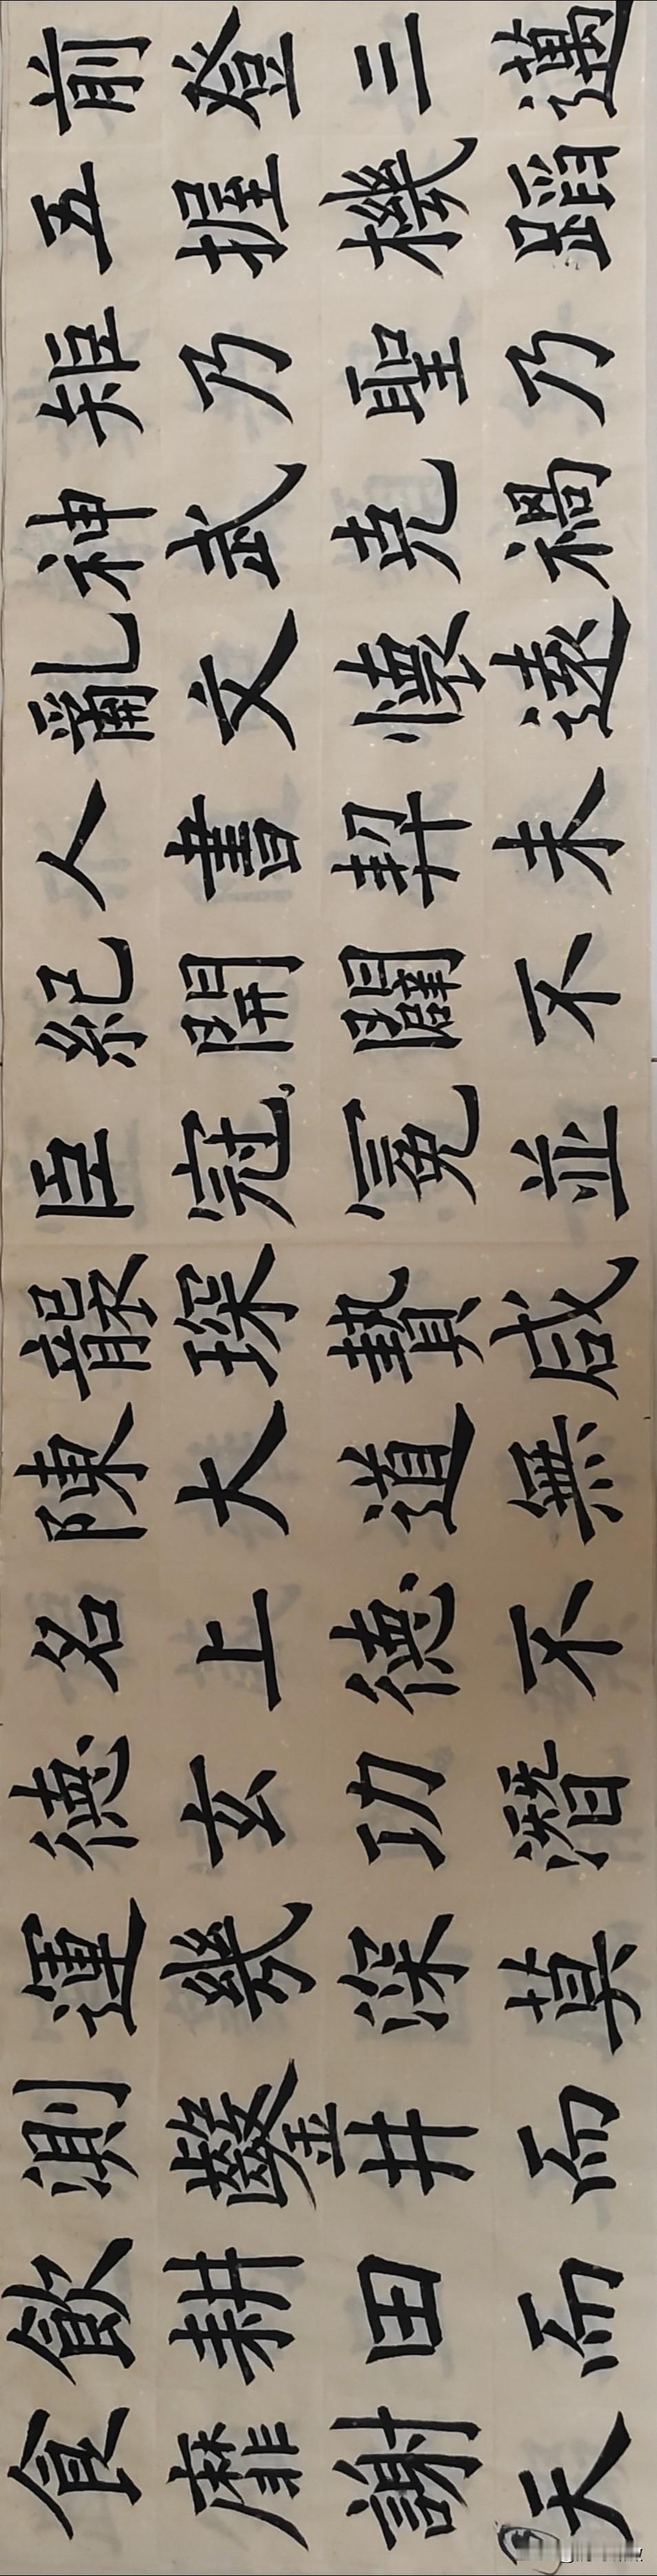 前登三邁
五握機蹈
矩乃聖乃
神武克禍
亂文懷遠
人書契未
紀開闢不
臣冠冕並
襲琛贄咸
陳大道無
名上德不
德玄功潛
運幾深莫
測鑿井而
飲耕田而
食靡謝天